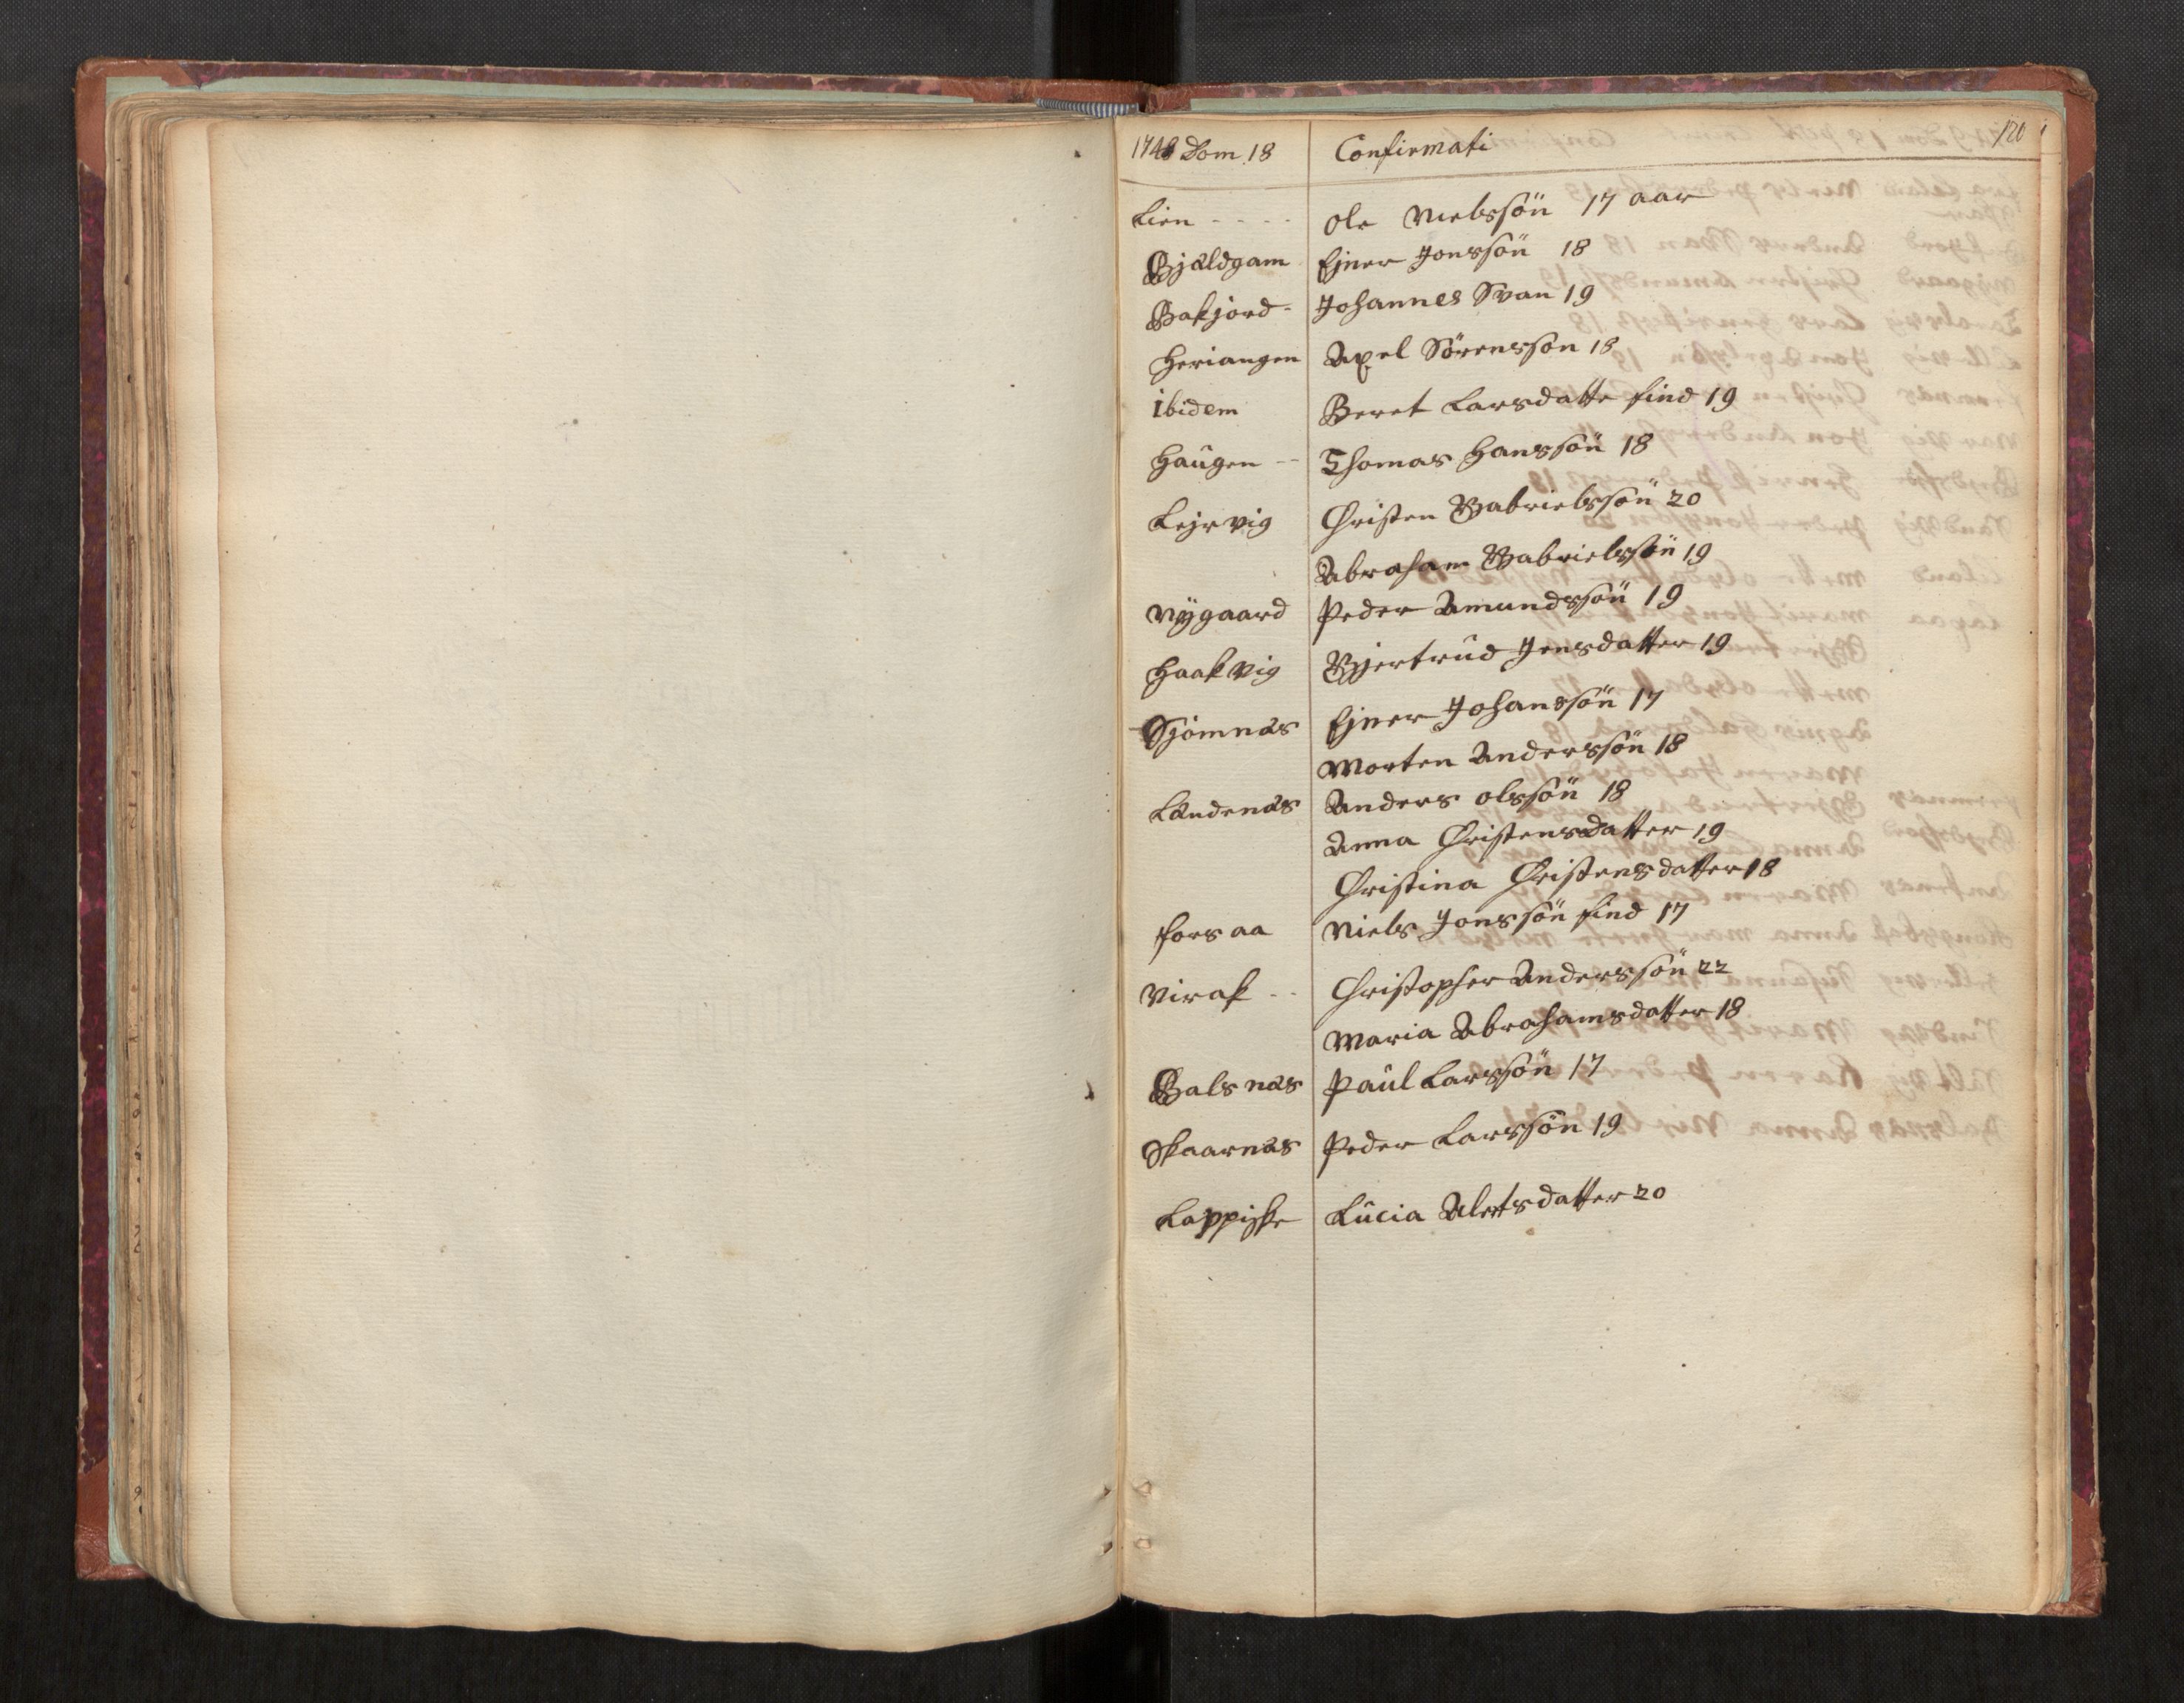 120
1748 Dom. 18 Confirmati
Lien - - - - Ole Nielssön 17 aar
Gjældgam Ejner Jonssön 18
Bakjord - Johannes Svan 19
Heriangen Axel Sörensson 18
Ibidem Beret Larsdatter find 19
Haugen -- Thomas Hanssön 18
Lejrvig Christen Gabrielssön 20
Abraham Gabrielssön 19
Nÿgaard Peder Amundssön 19
Haakvig Gjertrud Jensdatter 19
Sjomnæs Ejner Johanssön 17
Morten Anderssön 18
Lændenæs Anders Olssön 18
Anna Christensdatter 19
Christina Christensdatter 18
Forsaa Niels Jonssön find 17
Virak -- Christopher Anderssön 22
Maria Abrahamsdatter 18
Balsnæs Paul Larssön 17
Skaarnæs Peder Larssön 19
Lappiske Lucia datter 20